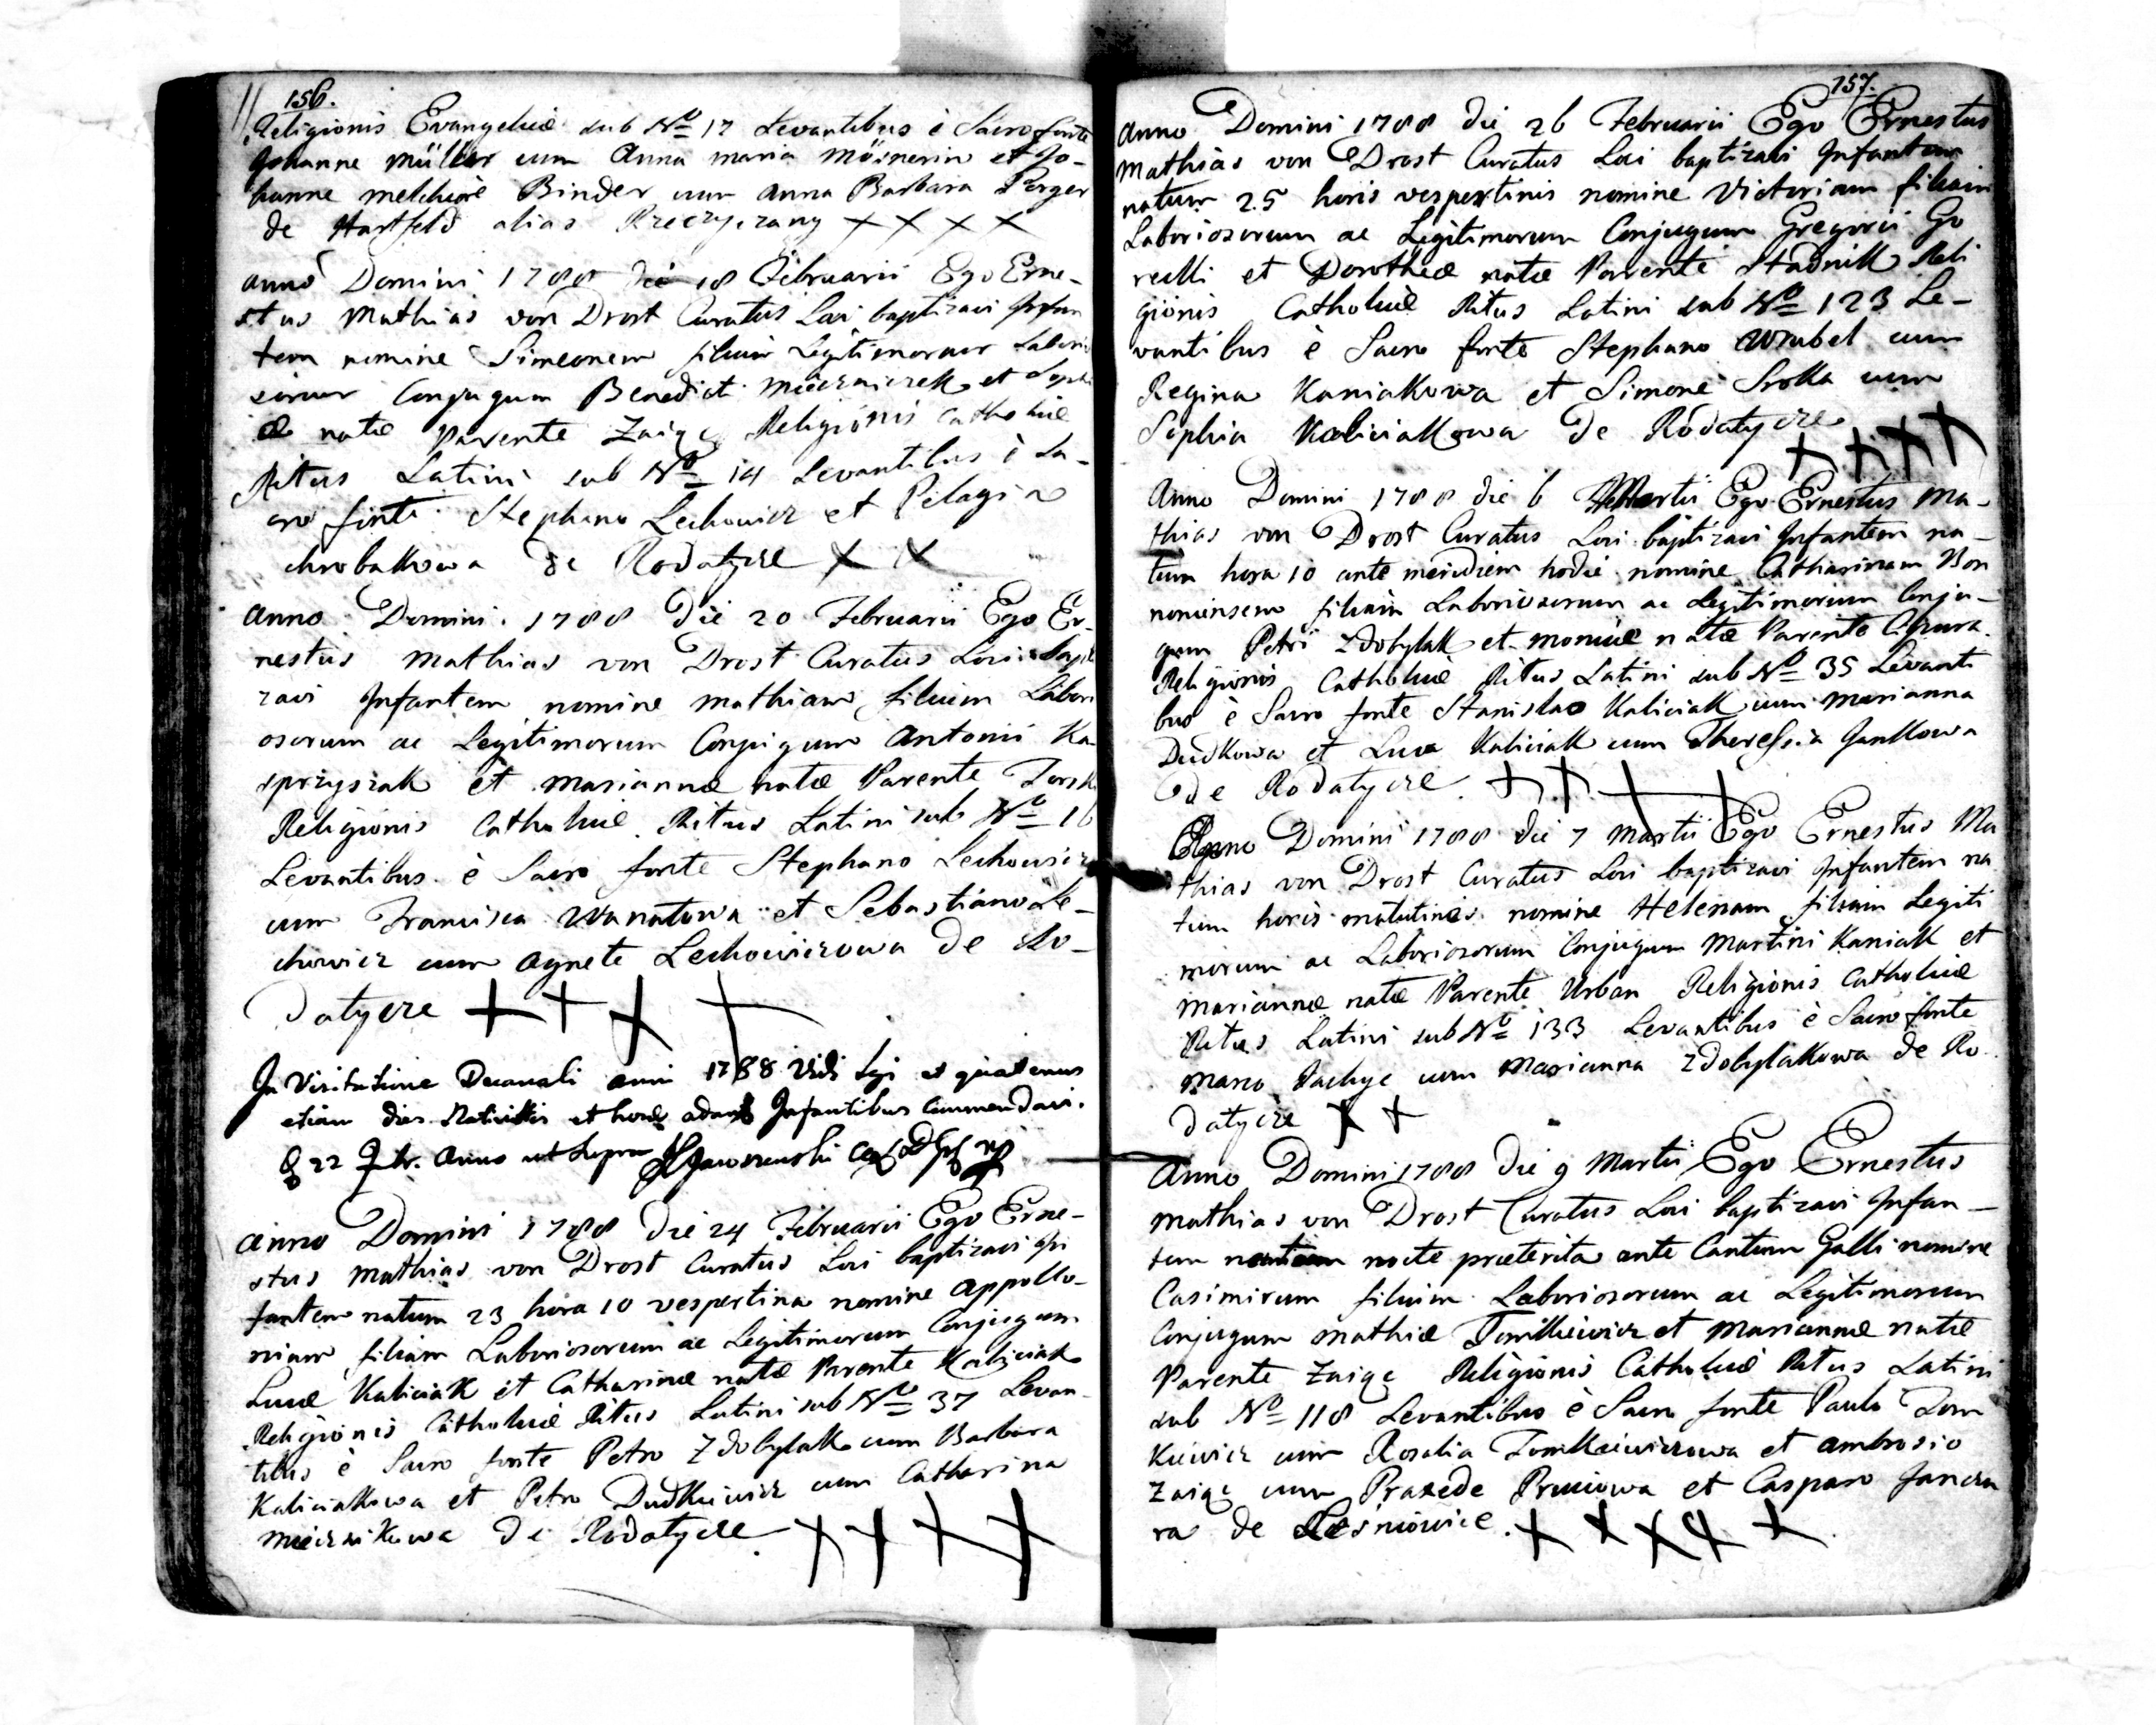 156.
Religionis Evangelicæ sub Nº 17 Levantibus è Sacro fonte
Johanne Müller cum Anna Maria Mösnerin et Jo-
hanne Melchiore Binder cum Anna Barbara Perger
de Hartfeld alias Rzeczyczany × × × ×
Anno Domini 1788 die 18 Februarii Ego Erne-
stus Mathias von Drost Curatus Loci baptizavi Infan
tem nomine Simeonem filium Legitimorum Laborio
sorum Conjugum Benedicti Mieczniczek et Sophi
æ natæ Parente Zaige Religionis Catholicæ
Ritus Latini sub Nº 14 Levantibus è Sa-
cro fonte Stephano Lechowicz et Pelagia
Chrobakowa de Rodatycze × ×
Anno Domini 1788 Die 20 Februarii Ego Er-
nestus Mathias von Drost Curatus Loci bapti
zavi Infantem nomine Mathiam filium Labori
osorum ac Legitimorum Conjugum Antonii Ka-
sprzyszak et Mariannæ natæ Parente
Religionis Catholicæ Ritus Latini sub Nº 16
Levantibus è Sacro fonte Stephano Lechowicz
cum Francisca Wanatowa et Sebastiano Le-
chowicz cum Agnete Lechowiczowa de Ro-
datycze + + + +
In Visitatione Decanali anni 1788 Vidi Legi et quatenus
etiam dies Nativitatis et horæ Infantibus commendavi.
22 Anno ut supra
Anno Domini 1788 Die 24 Februarii Ego Erne-
stus Mathias von Drost Curatus Loci baptizavi In
fantem natum 23 hora 10 vespertina nomine Appollo-
niam filiam Laboriosorum ac Legitimorum Conjugum
Lucæ Kaliciak et Catharinæ natæ Parente Kaliciak
Religionis Catholicæ Ritus Latini sub Nº 37 Levan-
tibus è Sacro fonte Petro Zdobylak cum Barbara
Kaliciakowa et Petro Dudkiewicz cum Catharina
Miecznikowa de Rodatycze + + + +
157.
Anno Domini 1788 Die 26 Februarii Ego Ernestus
Mathias von Drost Curatus Loci baptizavi Infantem
natum 25 horis vespertinis nomine Victoriam filiam
Laboriosorum ac Legitimorum Conjugum Gregorii Go
recki et Dorotheæ natæ Parente Stadnik Reli
gionis Catholicæ Ritus Latini sub Nº 123 Le-
vantibus è Sacro fonte Stephano Wrubel cum
Regina Kaniakowa et Simone Srokа cum
Sophia Kaliciakowa de Rodatycze
+ + + +
Anno Domini 1788 die 6 Martii Ego Ernestus Ma-
thias von Drost Curatus Loci baptizavi Infantem na-
tum hora 10 ante meridiem hodie nomine Catharinam Bon
noniensem filiam Laboriosorum ac Legitimorum Conju-
gum Petri Zdobylak et Monicæ natæ Parente
Religionis Catholicæ Ritus Latini sub Nº 35 Levanti
bus è Sacro fonte Stanislao Kaliciak cum Marianna
Dudkowa et Luca Kaliciak cum Theressia Jankowa
de Rodatycze. + + + +
Anno Domini 1788 die 7 Martii Ego Ernestus Ma
thias von Drost Curatus Loci baptizavi Infantem na
tum horis matutinis nomine Helenam filiam Legiti
morum ac Laboriosorum Conjugum Martini Kaniak et
Mariannæ natæ Parente Urban Religionis Catholicæ
Ritus Latini sub Nº 133 Levantibus è Sacro fonte
Marco cum Marianna Zdobylakowa de Ro
datycze × +
Anno Domini 1788 Die 9 Martii Ego Ernestus
Mathias von Drost Curatus Loci baptizavi Infan-
tem nocte præterita ante Cantum Galli nomine
Casimirum filium Laboriosorum ac Legitimorum
Conjugum Mathiæ Tomkiewicz et Mariannæ natæ
Parente Zaige Religionis Catholicæ Ritus Latini
sub Nº 118 Levantibus è Sacro fonte Paulo Tom
kiewicz cum Rosalia Tomkiewiczowa et Ambrosio
Zaige cum Praxede et Casparo
ra de Lesniowice. + + × + +